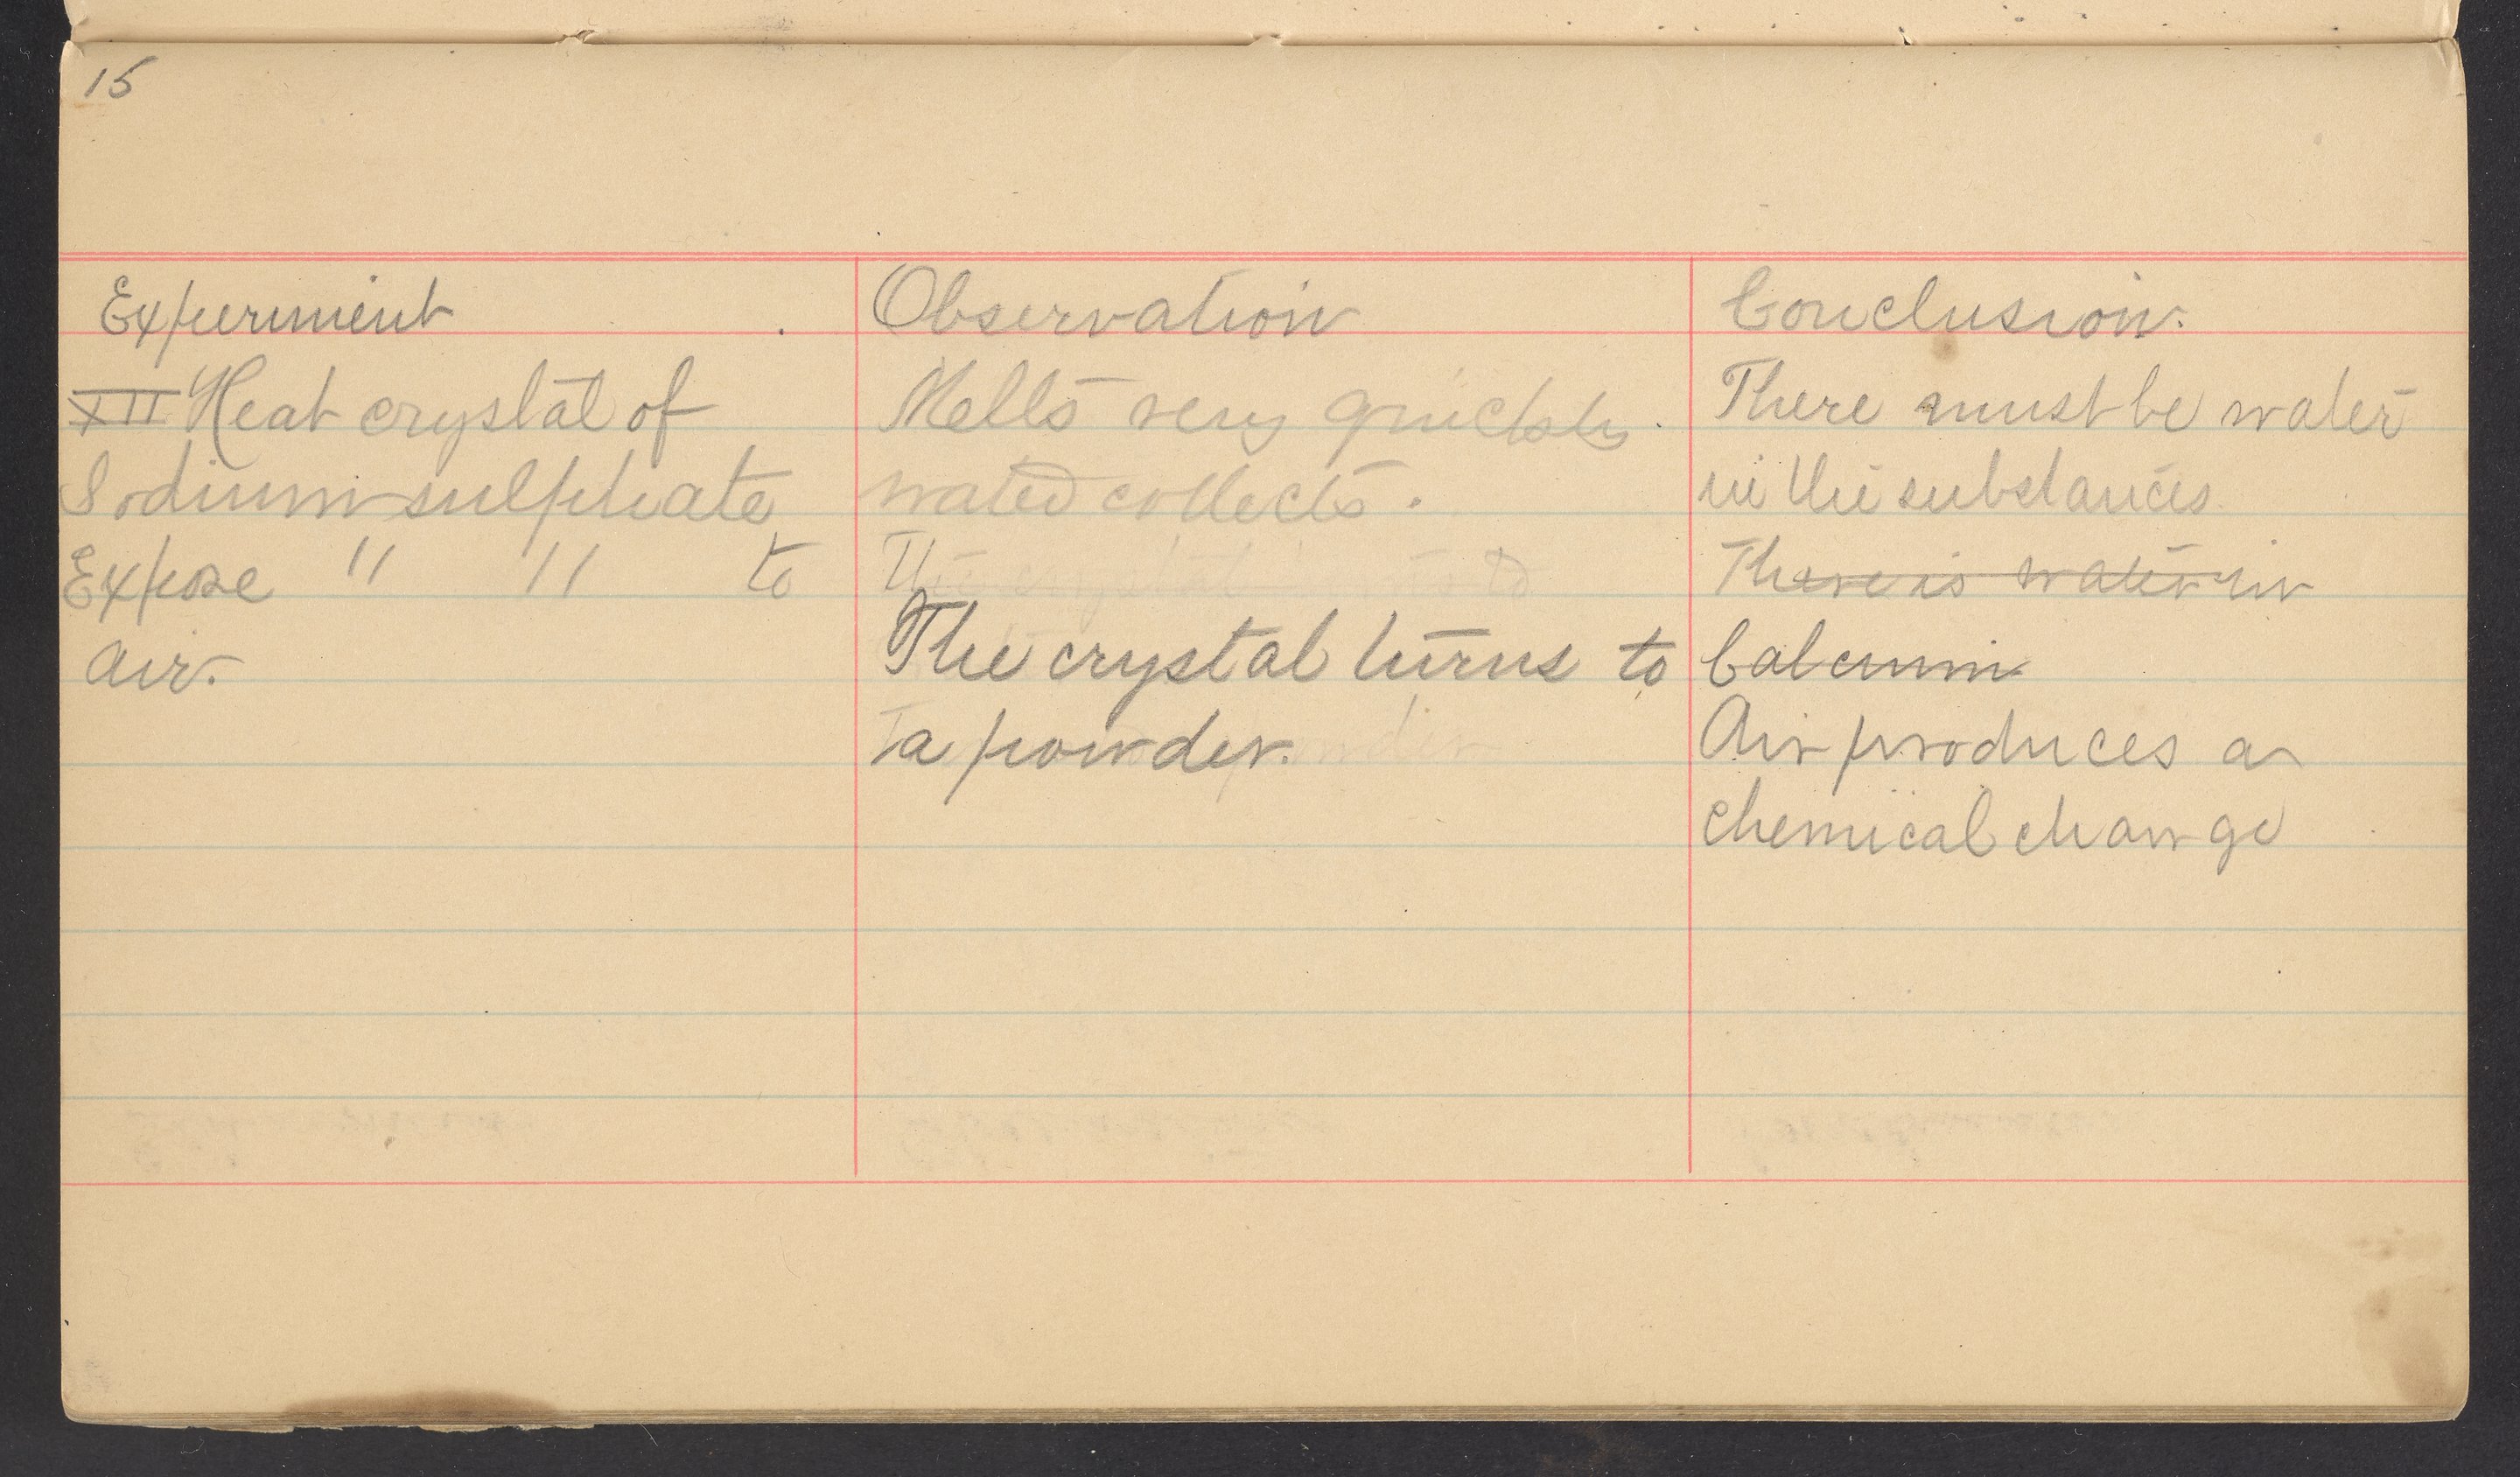 15
Experiment
XII Heat crystal of
Sodium sulphate
Expose " " to
air.
Observation
Melts very quickly.
water collects.
The crystal to
The crystal turns to
a powder.
Conclusion.
There must be water
in the substances
There is water in
Calcium
Air produces a
chemical change